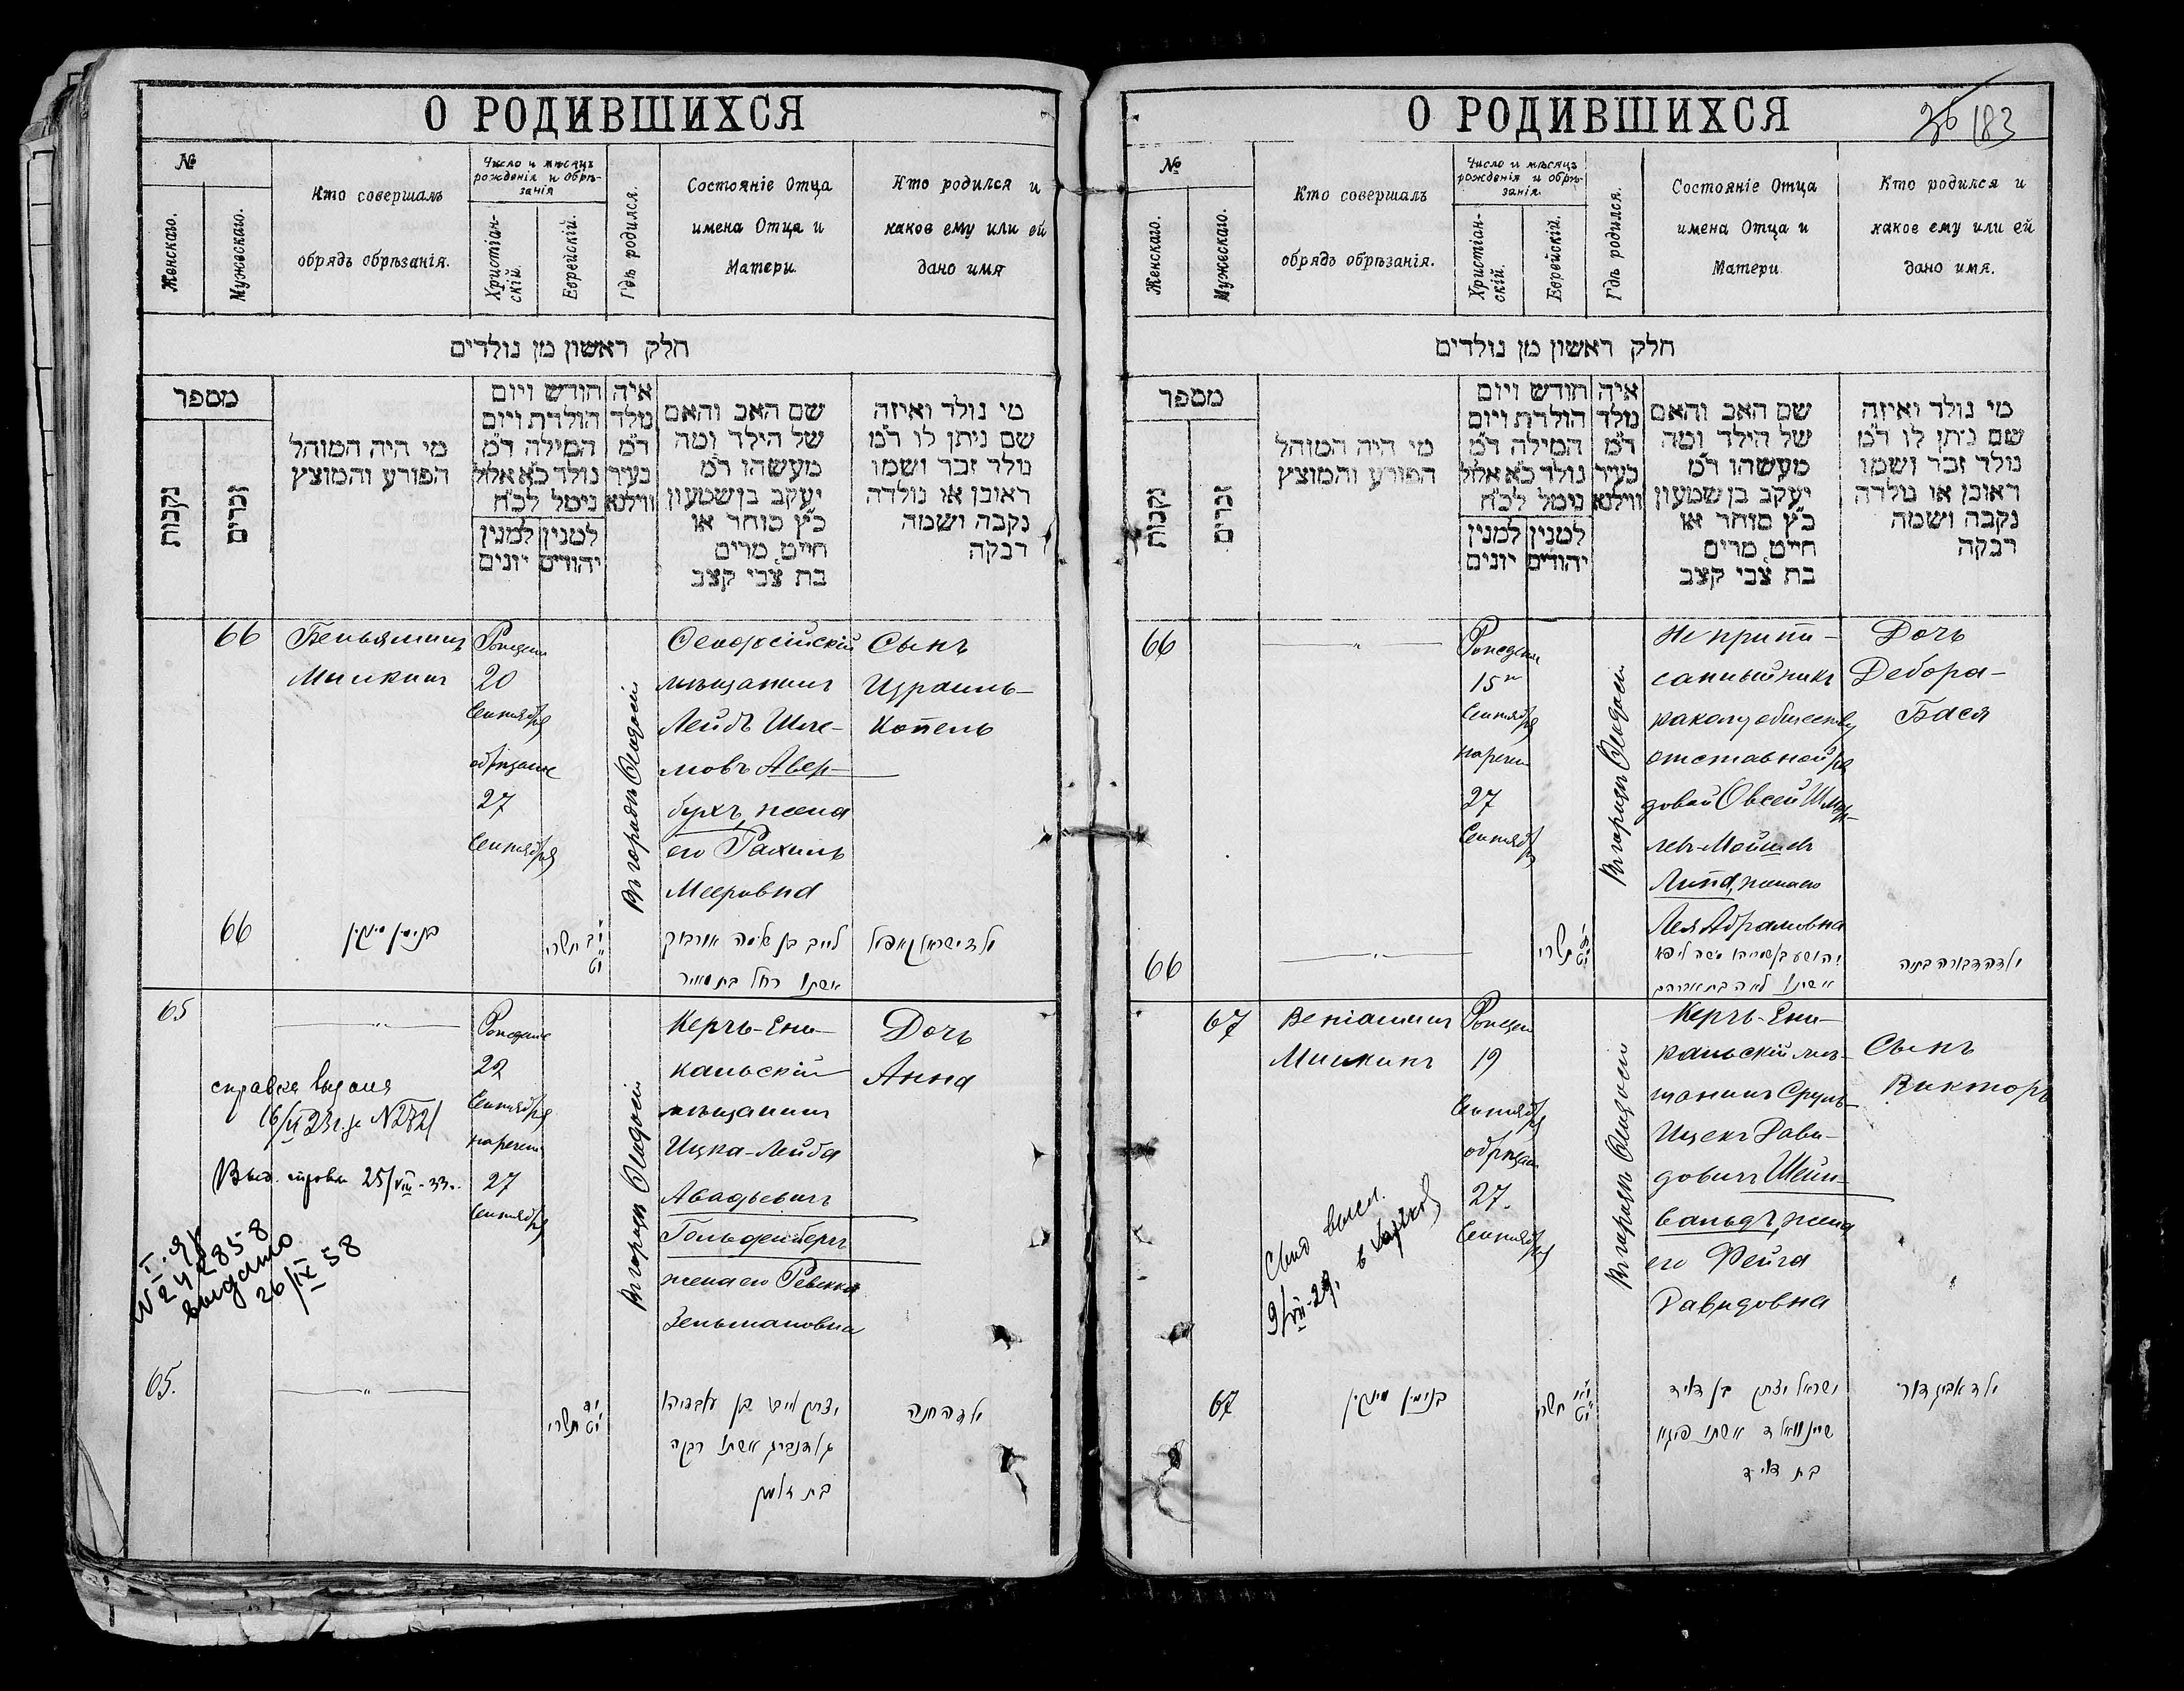 О РОДИВШИХСЯ
№
Женскаго.
Мужескаго.
Кто совершалъ
обрядъ обрѣзанія.
Число и мѣсяцъ
рожденія и обрѣ-
занія
Христіан-
скій.
Еврейскій.
Гдѣ родился.
Состояніе Отца
имена Отца и
Матери.
Кто родился и
какое ему или ей
дано имя
חלק ראשון מן נולדים
מספר
נקבות
זכרים
מי היה המוהל
הפורע והמוצץ
חודש ויום
הולדת ויום
המילה ד״מ
נולד כ״א אלול
נימל לכ״ח
למנין
יהודים
למנין
יונים
איה
נולד
ד״מ
בעיר
ווילנא
שם האב והאם
של הילד ומה
מעשהו ד״מ
יעקב בן שמעון
כ״ץ סוחר או
חייט מרים
בת צבי קצב
מי נולד ואיזה
שם ניתן לו ד״מ
נולד זכר ושמו
ראובן או נולדה
נקבה ושמה
רבקה
66
Беньяминъ
Мишкинъ
20
Сентября
27
Сентября
Въ городѣ Ѳеодосіи
Ѳеодосійскій
мѣщанинъ
Лейбъ Шле-
мовъ Авер-
бухъ, жена
его Рахиль
Мееровна
Сынъ
Израиль-
Копель
66
בנימין מישקין
תשרי
לייב בן שלמה אורבוך
אשתו רחל בת מאיר
65
22
Сентября
27
Сентября
Въ городѣ Ѳеодосіи
Керчь-Ени-
кальскій
мѣщанинъ
Ицка-Лейба
Авадьевичъ
Гольденбергъ
жена его Ревекка
Зельмановна
Дочь
Анна
справка выдана
Выд. справка 25/VIII-33г.
I. ЯР
N 242858
выдано
26/IX 58
65.
תשרי
יצחק לייב בן עובדיהו
גלדנברג אשתו רבקה
בת זלמן
ילדה חנה
О РОДИВШИХСЯ
36 183
№
Женскаго.
Мужескаго.
Кто совершалъ
обрядъ обрѣзанія.
Число и мѣсяцъ
рожденія и обрѣ-
занія.
Христіан-
скій.
Еврейскій.
Гдѣ родился.
Состояніе Отца
имена Отца и
Матери
Кто родился и
какое ему или ей
дано имя.
חלק ראשון מן נולדים
מספר
נקבות
זכרים
מי היה המוהל
הפורע והמוצץ
חודש ויום
הולדת ויום
המילה ד״מ
נולד כ״א אלול
נימל לכ״ח
למנין
יהודים
למנין
יונים
איה
נולד
ד״מ
בעיר
ווילנא
שם האב והאם
של הילד ומה
מעשהו ד״מ
יעקב בן שמעון
כ״ץ סוחר או
חייט מרים
בת צבי קצב
מי נולד ואיזה
שם ניתן לו ד״מ
נולד זכר ושמו
ראובן או נולדה
נקבה ושמה
רבקה
66
15
Сентября
27
Сентября
Въ городѣ Ѳеодосіи
Не припи-
санный ник
какому обществу
отставной ря
довой Овсей
Липа, жена его
Лея Абрамовна
Дочь
Дебора-
Бася
66
תשרי
אשתו לאה בת אברהם
ילדה דבורה בתיה
67
Веніаминъ
Мишкинъ
19
Сентября
27.
Сентября
Въ городѣ Ѳеодосіи
Керчь-Ени-
кальскій мѣ-
щанинъ Сруль
Ицекъ Дави-
довичъ Шейн-
вальдъ, жена
его Фейга
Давидовна
Сынъ
Викторъ
9/VII-29г. в Харьков
67
בנימין מישקין
תשרי
ישראל יצחק בן דויד
שיינוואלד אשתו פייגא
בת דויד
ילד אביגדור